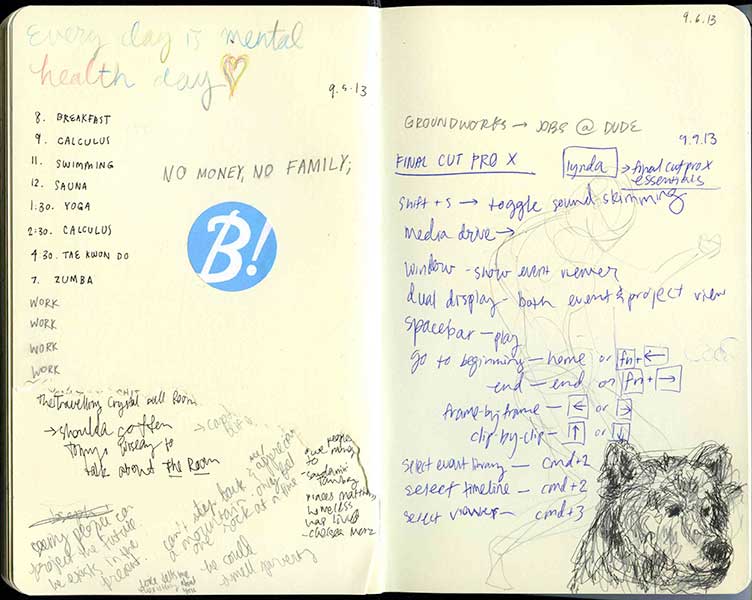 Every day is mental
health day
9.5.13
8. BREAKFAST
9. CALCULUS
11. SWIMMING
12. SAUNA
1:30. YOGA
2:30. CALCULUS
4:30. TAE KWON DO
7. ZUMBA
WORK
WORK
WORK
WORK
NO MONEY, NO FAMILY;
B!
the Travelling Crystal Ball Room
→ shoulda gotten
Tommy Wiseau to
talk about the Room
seeing people can
project the future
he exists in the
present.
can't step back & appreciate
a mountain
one rock at a time
he could
smell
people
homeless
was lived
- chelsea
9.6.13
GROUNDWORKS → JOBS @ DUDE
9.9.13
FINAL CUT PRO X
lynda → final cut pro x
essentials
shift + s → toggle sound skimming
media drive →
window - show event viewer
dual display - both event & project view
spacebar - play
go to beginning - home or fn + ←
end - end or fn + →
frame-by-frame - ← or →
clip-by-clip - ↑ or ↓
select event library - cmd + 1
select timeline - cmd + 2
select viewer - cmd + 3